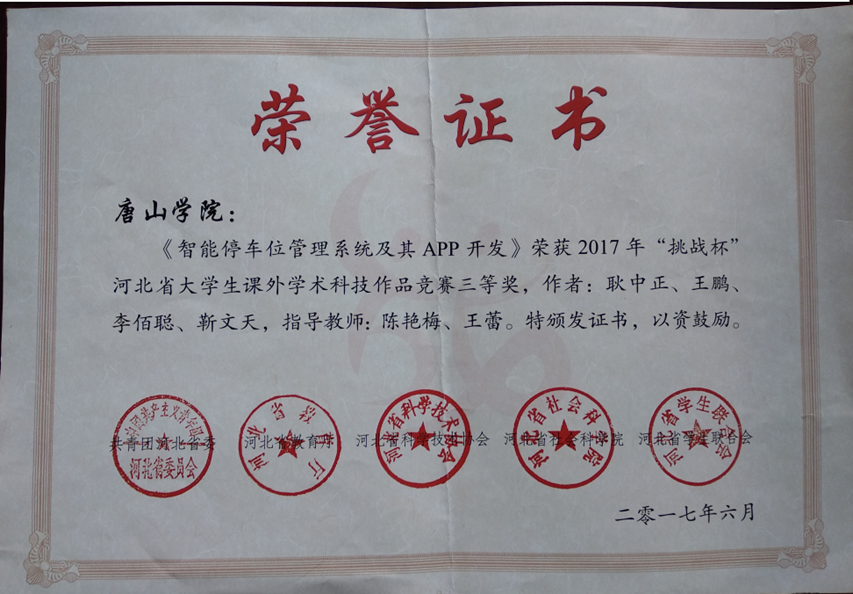 荣誉证书
唐山学院：
《智能停车位管理系统及其 APP 开发》荣获 2017 年“挑战杯”
河北省大学生课外学术科技作品竞赛三等奖，作者：耿中正、王鹏、
李佰聪、靳文天，指导教师：陈艳梅、王蕾。特颁发证书，以资鼓励。
共青团河北省委 河北省教育厅 河北省科学技术协会 河北省社会科学院 河北省学生联合会
河北省委员会
河北省教育厅
河北省科学技术协会
河北省社会科学院
河北省学生联合会
二零一七年六月